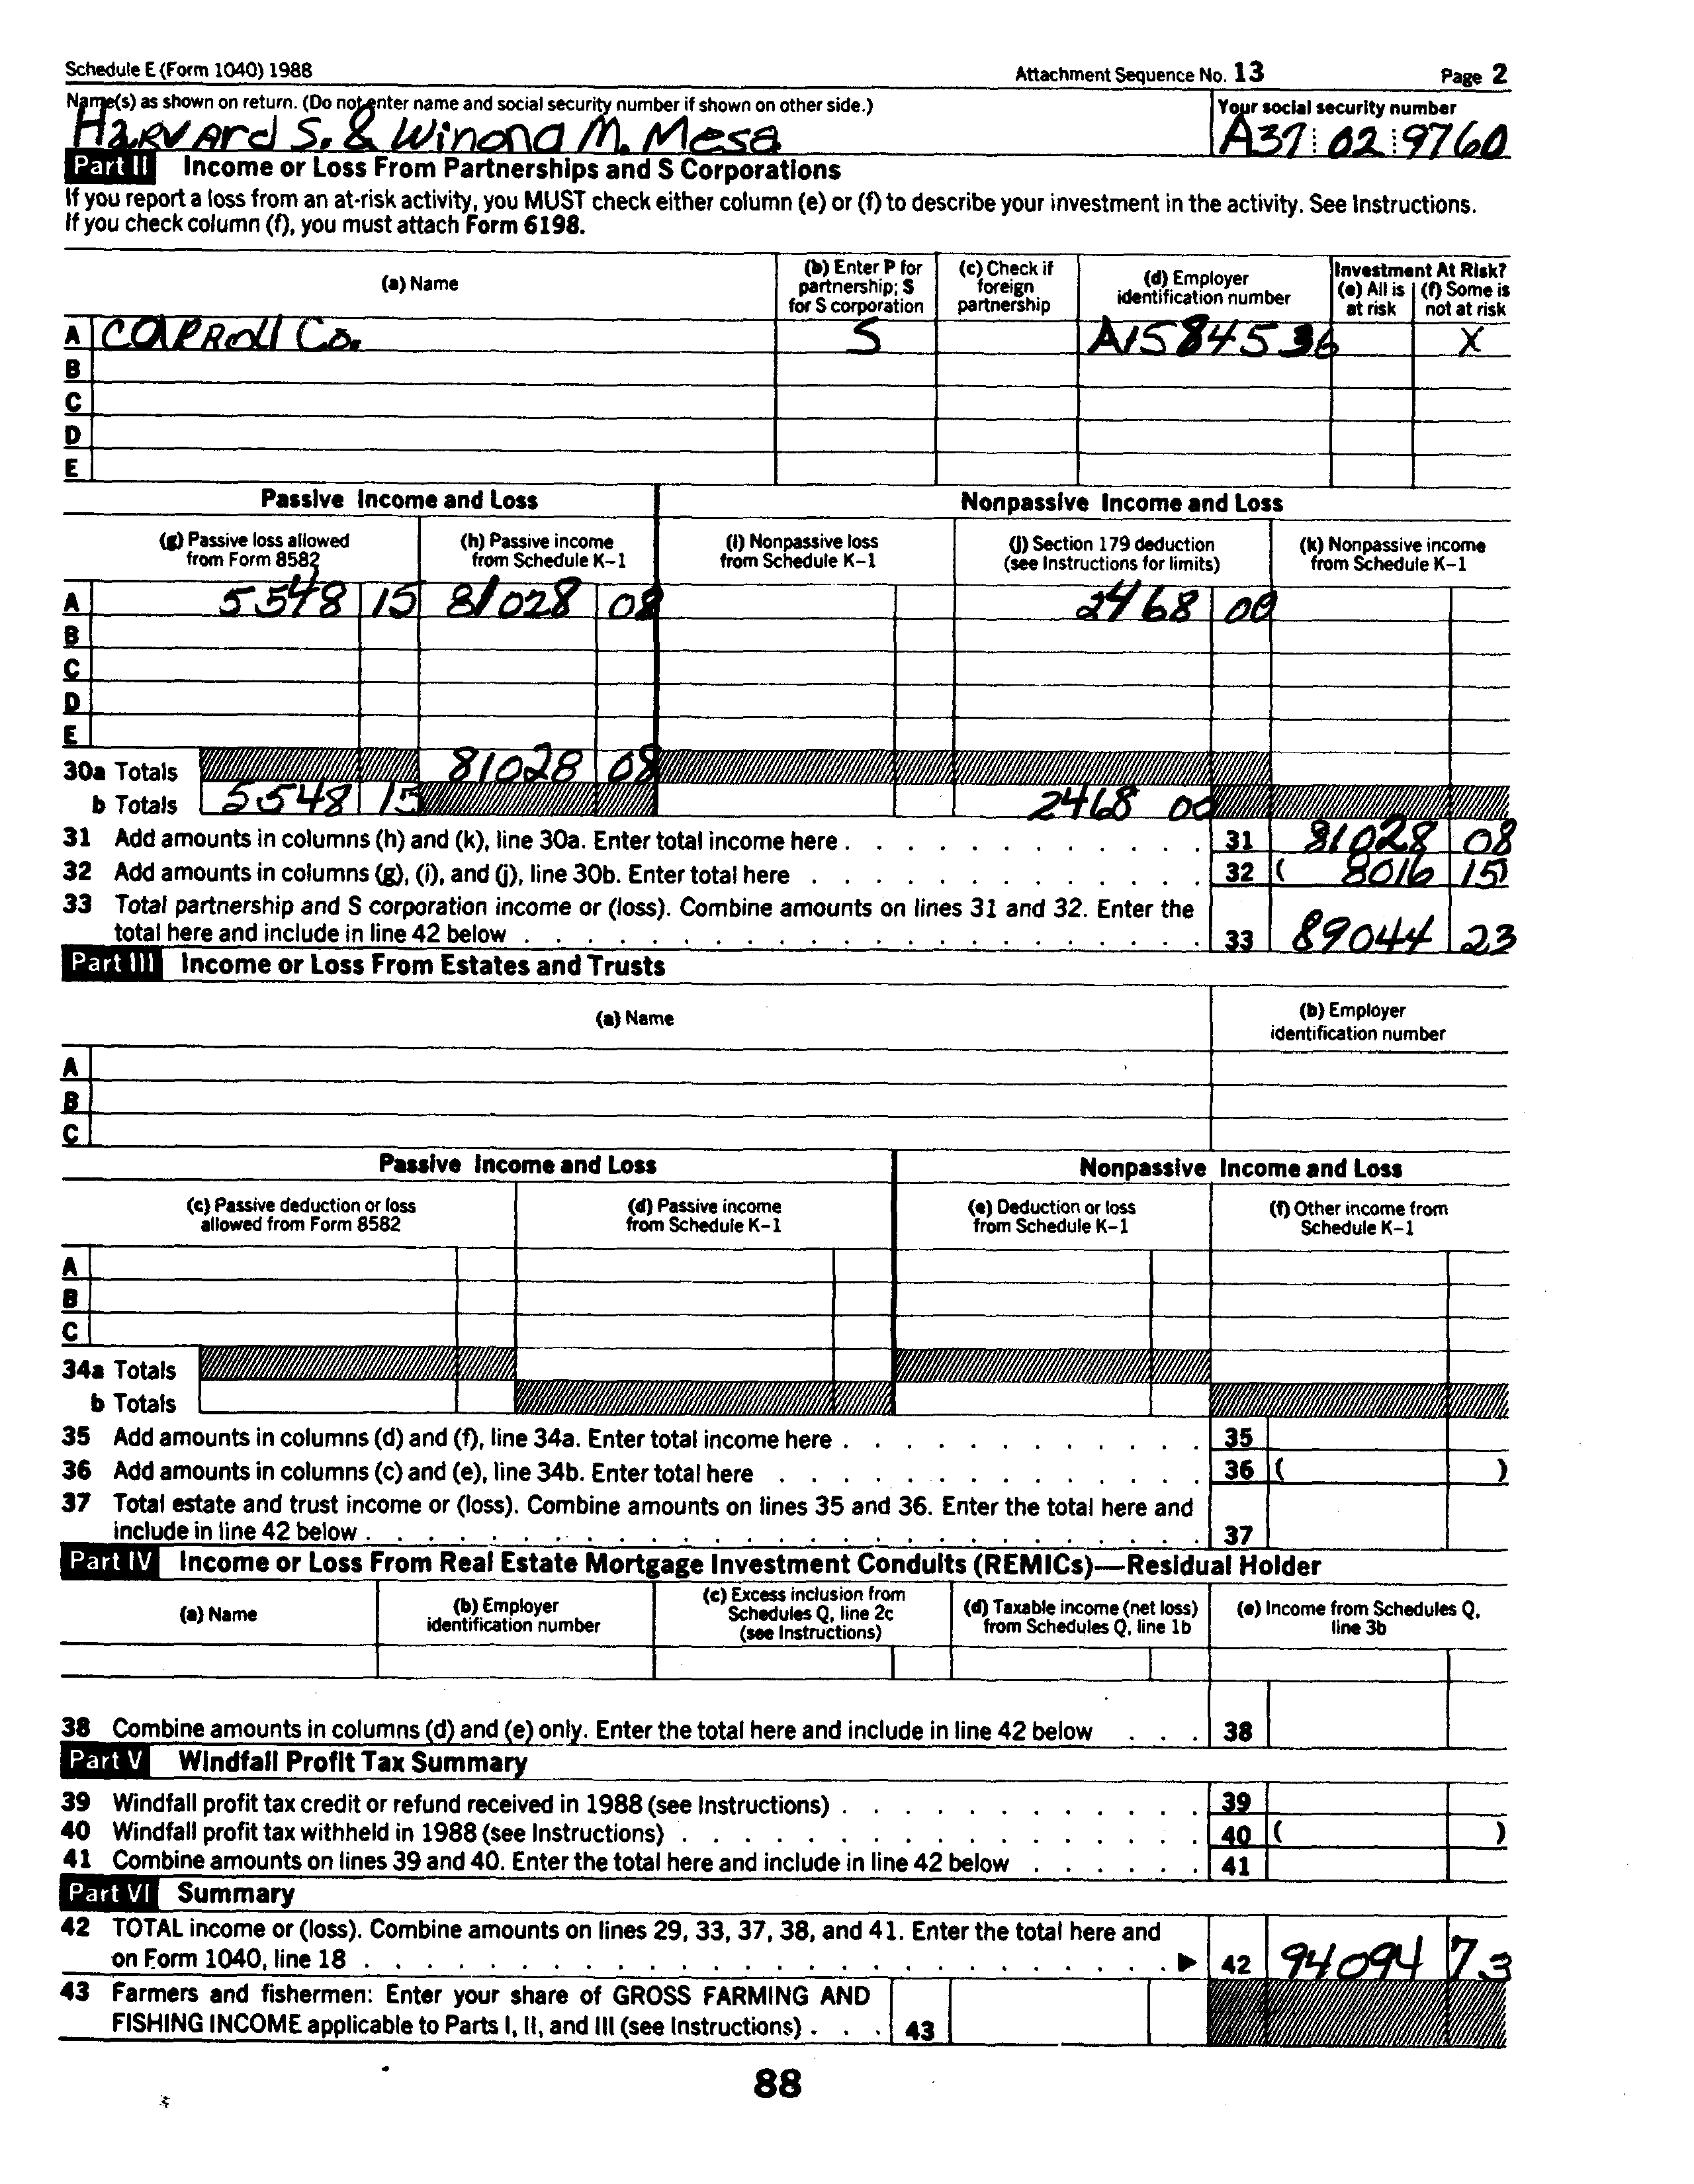 Schedule E (Form 1040) 1988 Attachment Sequence No. 13 Page 2
Name(s) as shown on return. (Do not enter name and social security number if shown on other side.) Your social security number
Harvard S. & Winona M. Mesa A37 02 9760
Part II Income or Loss From Partnerships and S Corporations
If you report a loss from an at-risk activity, you MUST check either column (e) or (f) to describe your investment in the activity. See Instructions.
If you check column (f), you must attach Form 6198.
(a) Name (b) Enter P for partnership; S for S corporation (c) Check if foreign partnership (d) Employer identification number Investment At Risk? (e) All is at risk (f) Some is not at risk
A Carroll Co. S A1584536 X
B
C
D
E
Passive Income and Loss Nonpassive Income and Loss
(g) Passive loss allowed from Form 8582 (h) Passive income from Schedule K–1 (i) Nonpassive loss from Schedule K–1 (j) Section 179 deduction (see Instructions for limits) (k) Nonpassive income from Schedule K–1
A 5548 15 81028 08 2468 00
B
C
D
E
30a Totals 81028 08
b Totals 5548 15 2468 00
31 Add amounts in columns (h) and (k), line 30a. Enter total income here . 31 81028 08
32 Add amounts in columns (g), (i), and (j), line 30b. Enter total here . 32 ( 8016 15)
33 Total partnership and S corporation income or (loss). Combine amounts on lines 31 and 32. Enter the
total here and include in line 42 below . 33 89044 23
Part III Income or Loss From Estates and Trusts
(a) Name (b) Employer identification number
A
B
C
Passive Income and Loss Nonpassive Income and Loss
(c) Passive deduction or loss allowed from Form 8582 (d) Passive income from Schedule K–1 (e) Deduction or loss from Schedule K–1 (f) Other income from Schedule K–1
A
B
C
34a Totals
b Totals
35 Add amounts in columns (d) and (f), line 34a. Enter total income here . 35
36 Add amounts in columns (c) and (e), line 34b. Enter total here . 36 ( )
37 Total estate and trust income or (loss). Combine amounts on lines 35 and 36. Enter the total here and
include in line 42 below . 37
Part IV Income or Loss From Real Estate Mortgage Investment Conduits (REMICs)—Residual Holder
(a) Name (b) Employer identification number (c) Excess inclusion from Schedules Q, line 2c (see Instructions) (d) Taxable income (net loss) from Schedules Q, line 1b (e) Income from Schedules Q, line 3b
38 Combine amounts in columns (d) and (e) only. Enter the total here and include in line 42 below . . . 38
Part V Windfall Profit Tax Summary
39 Windfall profit tax credit or refund received in 1988 (see Instructions) . 39
40 Windfall profit tax withheld in 1988 (see Instructions) . 40 ( )
41 Combine amounts on lines 39 and 40. Enter the total here and include in line 42 below . 41
Part VI Summary
42 TOTAL income or (loss). Combine amounts on lines 29, 33, 37, 38, and 41. Enter the total here and
on Form 1040, line 18 . ▶ 42 94094 73
43 Farmers and fishermen: Enter your share of GROSS FARMING AND
FISHING INCOME applicable to Parts I, II, and III (see Instructions) . . . 43
88